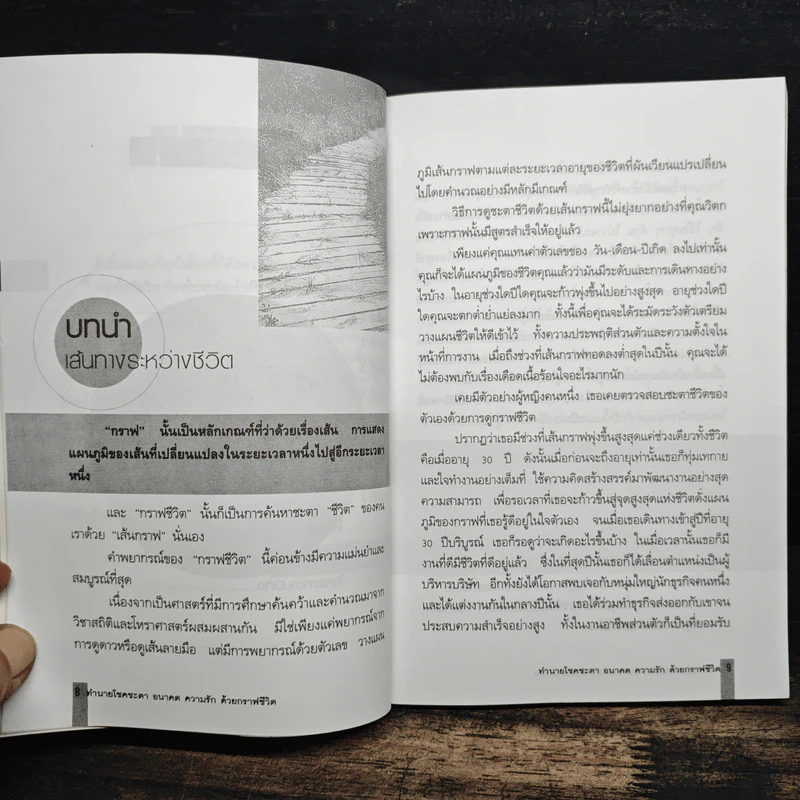 บทนำ
เส้นทางระหว่างชีวิต
"กราฟ" นั้นเป็นหลักเกณฑ์ที่ว่าด้วยเรื่องเส้น การแสดง
แผนภูมิของเส้นที่เปลี่ยนแปลงในระยะเวลาหนึ่งไปสู่อีกระยะเวลา
หนึ่ง
และ "กราฟชีวิต" นั้นก็เป็นการค้นหาชะตา "ชีวิต" ของคน
เราด้วย "เส้นกราฟ" นั่นเอง
คำพยากรณ์ของ "กราฟชีวิต" นี้ค่อนข้างมีความแม่นยำและ
สมบูรณ์ที่สุด
เนื่องจากเป็นศาสตร์ที่มีการศึกษาค้นคว้าและคำนวณมาจาก
วิชาสถิติและโหราศาสตร์ผสมผสานกัน มิใช่เพียงแค่พยากรณ์จาก
การดูดาวหรือดูเส้นลายมือ แต่มีการพยากรณ์ด้วยตัวเลข วางแผน
8 ทำนายโชคชะตา อนาคต ความรัก ด้วยกราฟชีวิต
ภูมิเส้นกราฟตามแต่ละระยะเวลาอายุของชีวิตที่ผันเวียนแปรเปลี่ยน
ไปโดยคำนวณอย่างมีหลักมีเกณฑ์
วิธีการดูชะตาชีวิตด้วยเส้นกราฟนี้ไม่ยุ่งยากอย่างที่คุณวิตก
เพราะกราฟนั้นมีสูตรสำเร็จให้อยู่แล้ว
เพียงแค่คุณแทนค่าตัวเลขของ วัน-เดือน-ปีเกิด ลงไปเท่านั้น
คุณก็จะได้แผนภูมิของชีวิตคุณแล้วว่ามันมีระดับและการเดินทางอย่าง
ไรบ้าง ในอายุช่วงใดปีใดคุณจะก้าวพุ่งขึ้นไปอย่างสูงสุด อายุช่วงใดปี
ใดคุณจะตกต่ำย่ำแย่ลงมาก ทั้งนี้เพื่อคุณจะได้ระมัดระวังตัวเตรียม
วางแผนชีวิตให้ดีเข้าไว้ ทั้งความประพฤติส่วนตัวและความตั้งใจใน
หน้าที่การงาน เมื่อถึงช่วงที่เส้นกราฟทอดลงต่ำสุดในปีนั้น คุณจะได้
ไม่ต้องพบกับเรื่องเดือดเนื้อร้อนใจอะไรมากนัก
เคยมีตัวอย่างผู้หญิงคนหนึ่ง เธอเคยตรวจสอบชะตาชีวิตของ
ตัวเองด้วยการดูกราฟชีวิต
ปรากฏว่าเธอมีช่วงที่เส้นกราฟพุ่งขึ้นสูงสุดแค่ช่วงเดียวทั้งชีวิต
คือเมื่ออายุ 30 ปี ดังนั้นเมื่อก่อนจะถึงอายุเท่านั้นเธอก็ทุ่มเทกาย
และใจทำงานอย่างเต็มที่ ใช้ความคิดสร้างสรรค์มาพัฒนางานอย่างสุด
ความสามารถ เพื่อรอเวลาที่เธอจะก้าวขึ้นสู่จุดสูงสุดแห่งชีวิตดังแผน
ภูมิของกราฟที่เธอรู้ดีอยู่ในใจตัวเอง จนเมื่อเธอเดินทางเข้าสู่ปีที่อายุ
30 ปีบริบูรณ์ เธอก็รอดูว่าจะเกิดอะไรขึ้นบ้าง ในเมื่อเวลานั้นเธอก็มี
งานที่ดีมีชีวิตที่ดีอยู่แล้ว ซึ่งในที่สุดปีนั้นเธอก็ได้เลื่อนตำแหน่งเป็นผู้
บริหารบริษัท อีกทั้งยังได้โอกาสพบเจอกับหนุ่มใหญ่นักธุรกิจคนหนึ่ง
และได้แต่งงานกันในกลางปีนั้น เธอได้ร่วมทำธุรกิจส่งออกกับเขาจน
ประสบความสำเร็จอย่างสูง ทั้งในงานอาชีพส่วนตัวก็เป็นที่ยอมรับ
ทำนายโชคชะตา อนาคต ความรัก ด้วยกราฟชีวิต 9